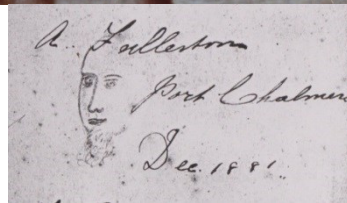 A. Fullerton
Port Chalmers
Dec. 1881.